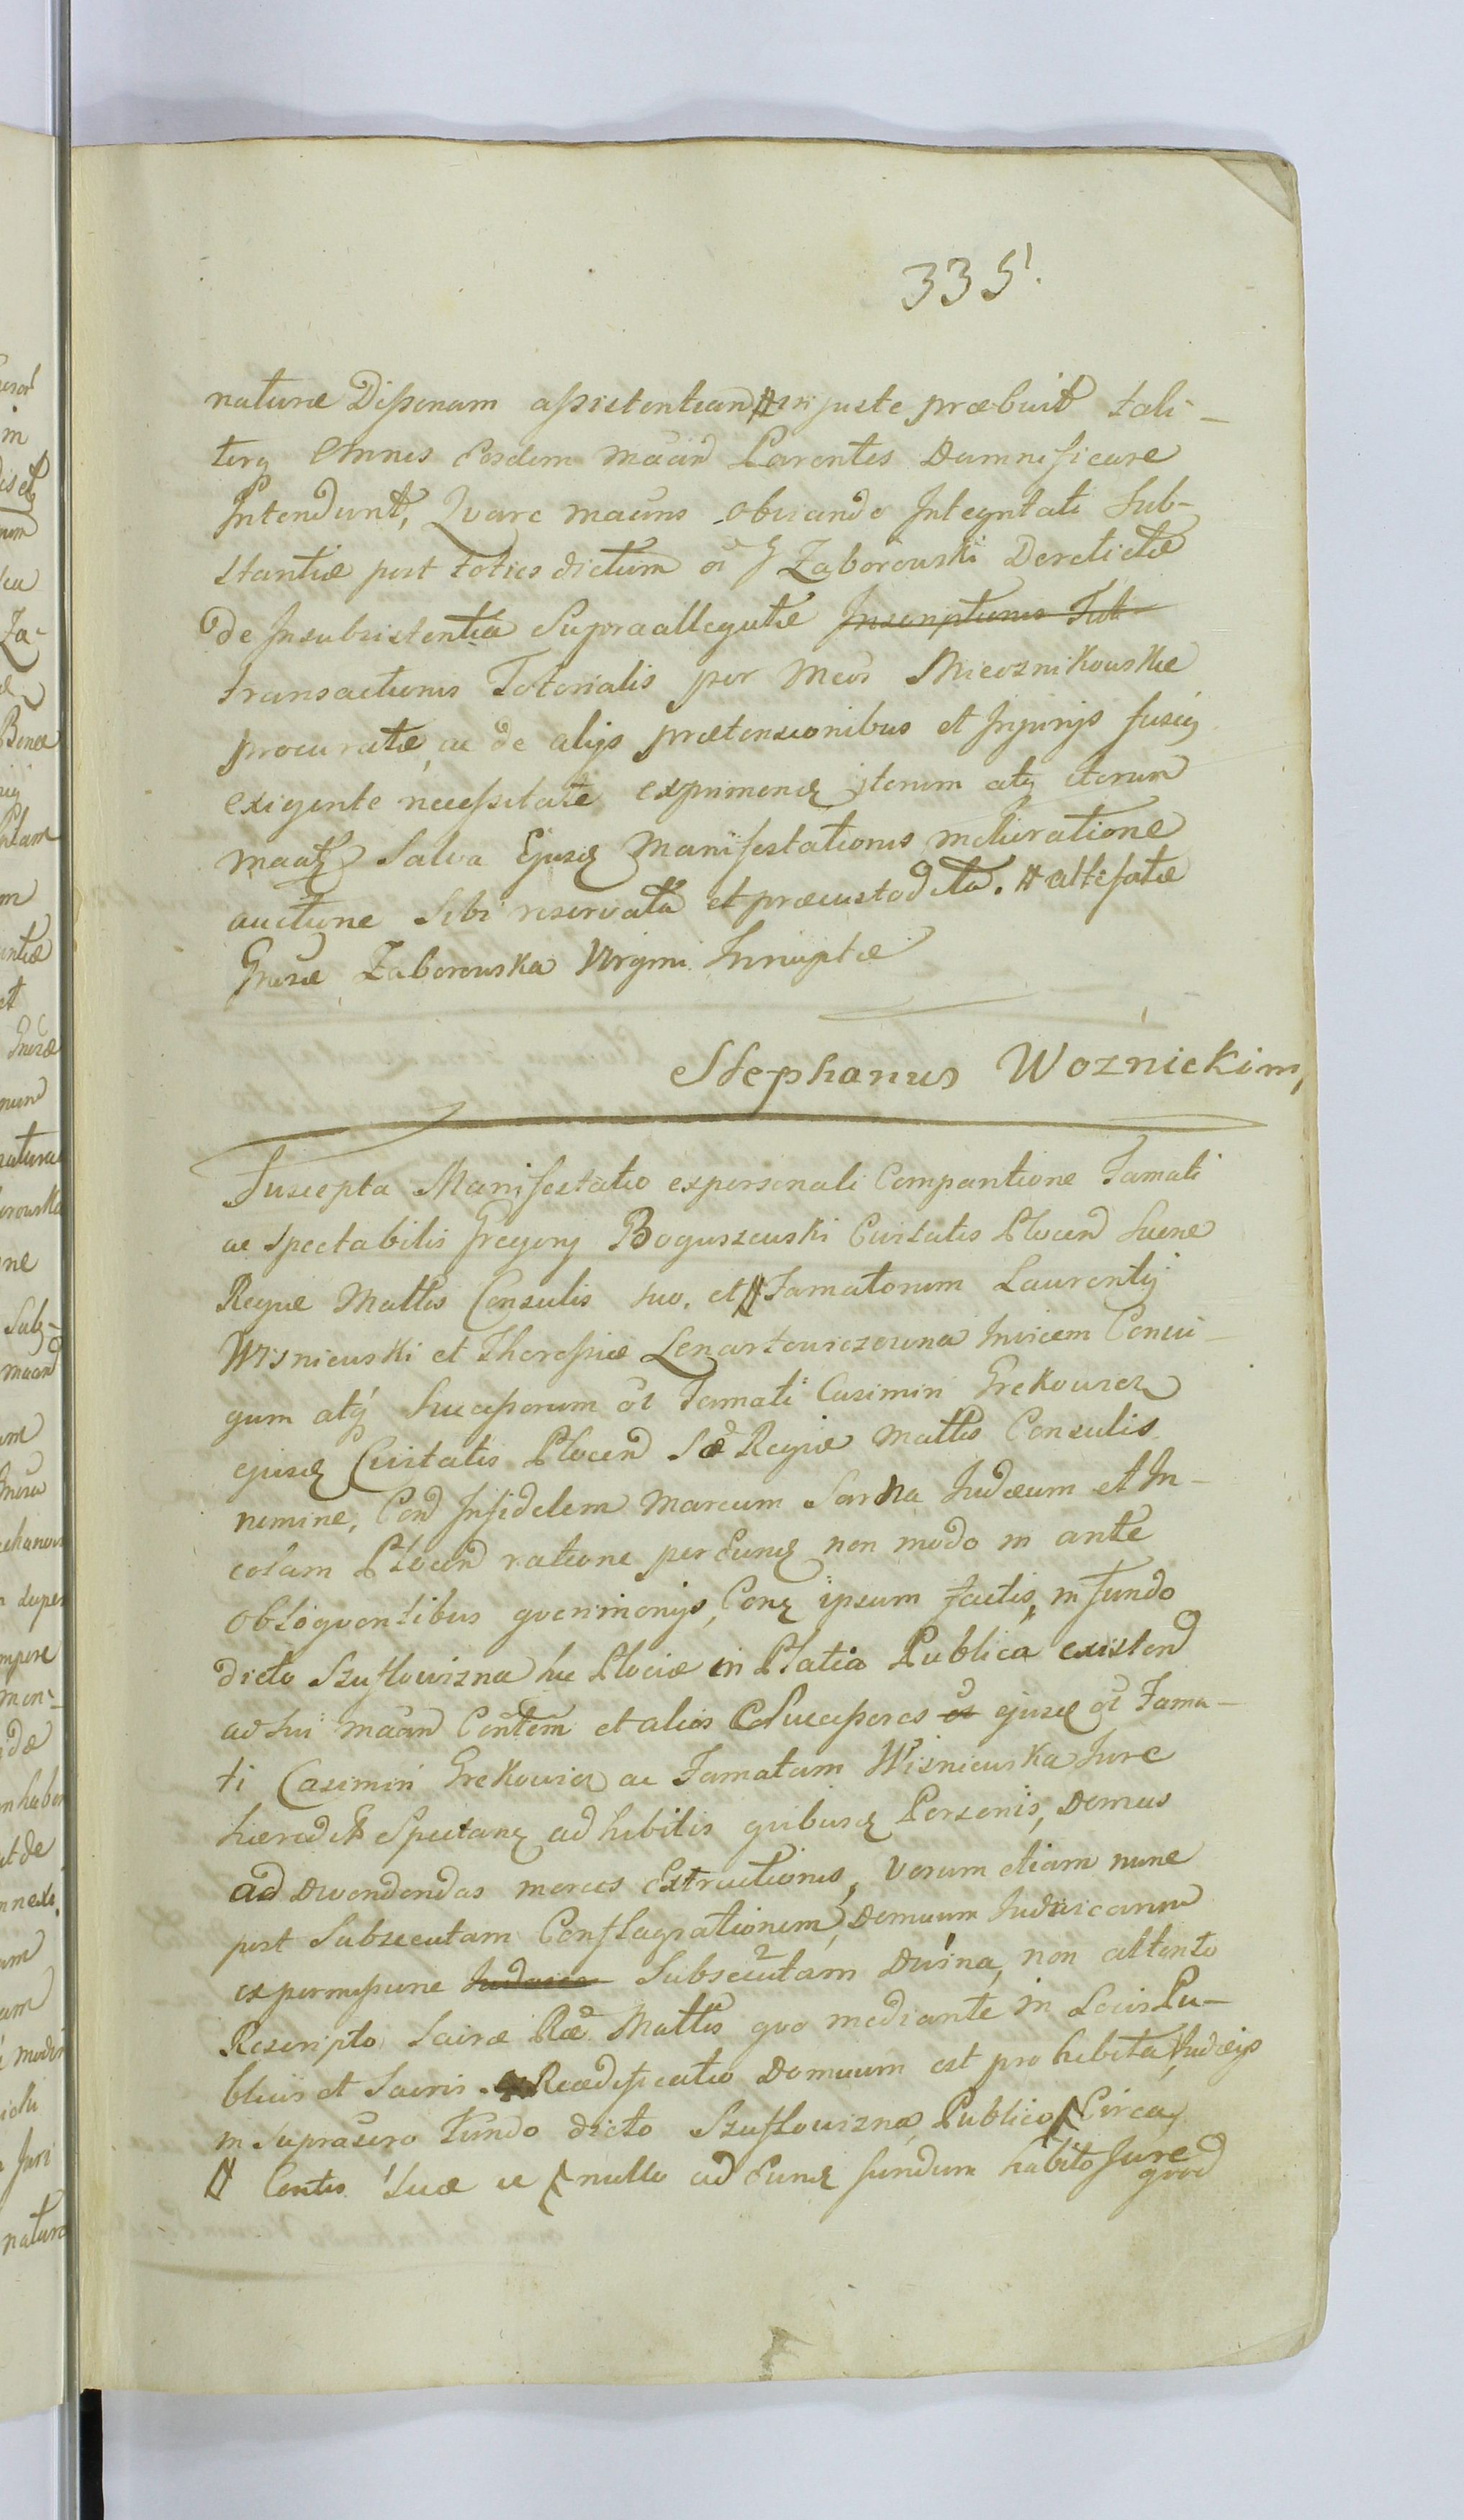 335.
naturæ Disponam assistentiam # injuste præbuit tali-
terq omnes eosdem maan Parentes Damnificare
Intendunt, Qvare maans obviando Integritati Sub-
stantiæ post toties dictum oi G Zaborowski Derelictæ
de Insubsistentia Supraallegatæ Inscriptionis Tut
transactionis Totorialis per Mcos Miecznikowskie
procuratæ, ac de alijs prætensionibus et Injurijs fusiq
exigente necessitate exprimend iterum atq iterum
maatq Salva Ejusd Manifestationis melioratione
auctione Sibi reservata et præcustodita. # altefatæ
Gnosæ Zaborowska Virgini Innuptæ
Stephanus Woznicki m,
Suscepta Manifestatio ex personali Comparitione Famati
ac Spectabilis Gregorij Boguszewski Civitatis Plocen Sacræ
Regiæ Mattis Consulis suo, et # Famatorum Laurentij
Wisniewski et Theressiæ Lenartowiczowna Invicem Conju-
gum atq Successorum oi Famati Casimiri Grekowicz
ejusd Civitatis Plocen Sæ Regiæ Mattis Consulis
nomine, Con Infidelem Marcum Sarna Judæum et In-
colam Plocen ratione per Eund non modo in ante
obloqventibus qverimonijs, Conq ipsum factis, in fundo
dicto Szuflowizna hic Plociæ in Platea Publica existen
ad sui maan Contem et alios CoSuccessores oi ejusd oi Fama-
ti Casimiri Grekowicz ac Famatam Wisniewska Jure
hæredit Spectanq adhibitis qvibusd Personis, Domus
ad Divendendas merces Extructionis, verum etiam nunc
post Subsecutam Conflagrationem, Domuum Judaicarum
ex permissione Judaica Subsecutam Divina, non attento
Rescripto Sacræ Ræ Mattis qvo mediante in Locis Pu-
blicis et Sacris Reædificatio Domuum est prohibita, Judæis
in Suprascro Fundo dicto Szuflowizna, Publico, Circa
# Contis Suæ ac nullo ad Eund fundum habito Jure
qvod